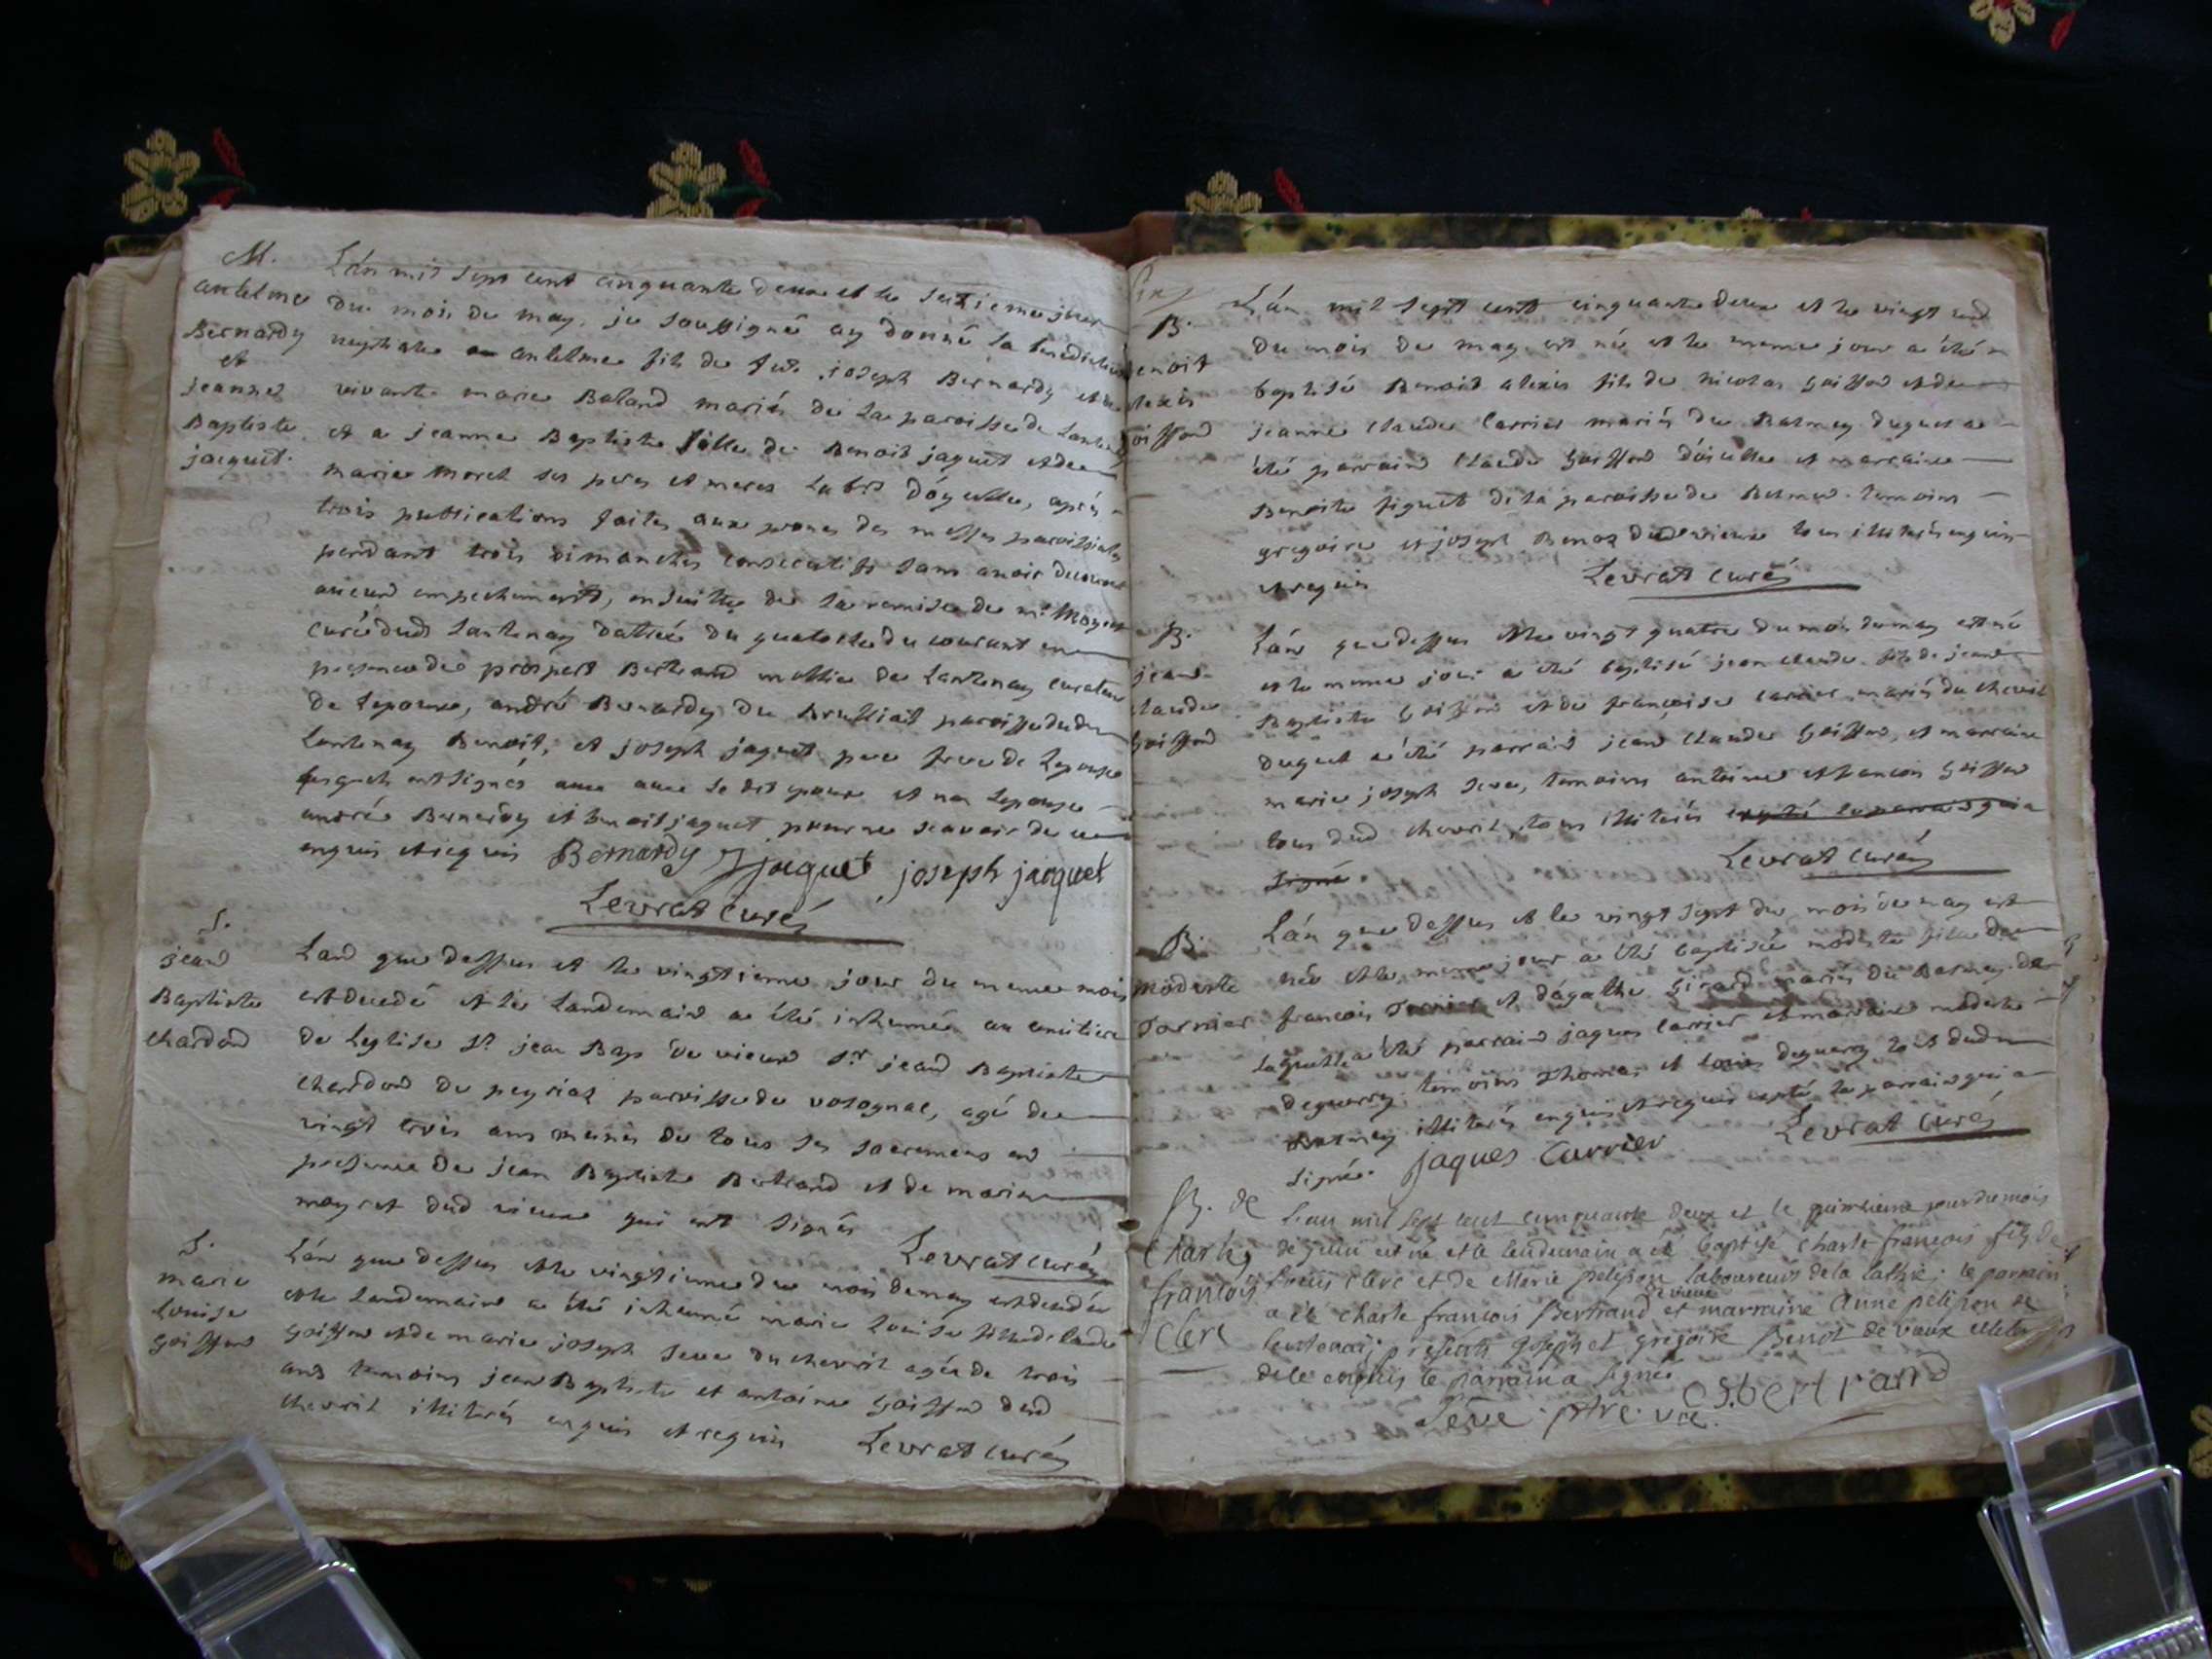 M.
antelme
Bernardy
et
jeanne
Baptiste
jacquet.
Lán mil sept cent cinquante deux et le seizieme jour
du mois de may, je soussigné ay donné la benediction
nuptiale a antelme fils de feu joseph Bernardy et de
vivante marie Baland mariés de la paroisse de Lantenay
et a jeanne Baptiste fille de Benoit jaquet et de
marie moret ses peres et meres dóyselle, aprés
trois publications faites aux prones des messes paroissiales
pendant trois dimanches consecutifs sans avoir decouvert
aucund empechement, ensuitte de la remise de mr Moyret
curé dud Lantenay dattée du quatorze du courant en
presence de prosper Bertrand mollie de Lantenay curateur
de Lepoux, andré Bernardy du Brulliat paroisse dud
Lantenay Benoit, et joseph jaquet pere frere de Lepouse
lesquels ont signés avec le dit epoux et non Lepouse
andré Bernardy et benoit jaquet pour ne scavoir de ce
enquis et requis Bernardy J jaquet joseph jacquet
Levrat curé
S.
jean
Baptiste
chardon
Land que dessus et le vingtieme jour du meme mois
est decedé et le Landemaind a été inhumé au cimitiere
de Leglise St jean Bap de vieux Sr jeand Baptiste
chardond de peyriaz paroisse de vosognat, agé de
vingt trois ans munis de tous ses sacremens en
presence de jean Baptiste Bertrand et de marin
moyret dud vieux qui ont signés
Levrat curé
S.
marie
Louise
Goiffon
Lán que dessus et le vingtieme du mois de may est decedée
et le Landemaind a été inhumé marie Louise fille de claude
Goiffon et de marie joseph Seve du chevril agée de trois
ans temoins jean Baptiste et antoine Goiffon dud
chevril illiterés enquis et requis Levrat curé
B.
Benoit
alexis
Goiffond
Lán mil sept cent cinquante deux et le vingt und
du mois de may est né et le meme jour a été
baptisé Benoit alexis fils de nicolas Goiffon et de
jeanne claude Carrier mariés du Balmey duquel a
été parraind claude Goiffon dóiselle et marraine
Benoite figuet de la paroisse de Belmond. temoins
gregoire et joseph Benoz dud vieux tous illiterés enquis
et requis
Levrat curé
B.
jean
claude
Goiffond
Lán que dessus et le vingt quatre du mois de may est né
et le meme jour a été baptisé jean claude fils de jeand
Baptiste Goiffon et de françoise carrier mariés du chevril
duquel a été parraind jean claude Goiffon, et marraine
marie joseph Seve, temoins antoine et francois Goiffon
tous dud chevril, tous illiterés excepté le parraind qui a
signé.
Levrat curé
B.
modeste
Tornier
Lán que dessus et le vingt sept du mois de may est
née et le meme jour a été baptisée modeste fille de
francois Tornier et dágathe Girard mariés du Balmey de
laquelle a été parraind jaques carrier et marraine modeste
deguerry. temoins thomas et Louis deguerry tous dud
Balmey illiterés enquis et requis excepté le parraind qui a
signé. jaques Carrier Levrat curé
B. de
Charle
françois
Clerc
L'an mil sept cent cinquante deux et le quinzieme jour du mois
de juin est né et le lendemain a été baptisé Charle françois fils de
Clerc et de Marie pelisson laboureurs de la le parrain
a été Charle françois Bertrand de vieux et marraine Anne pelisson de
Lentenai; presents joseph et gregoire Benoz de vieux
de le enquis le parrain a signé
C.F. bertrand
Séve. ptre vic.